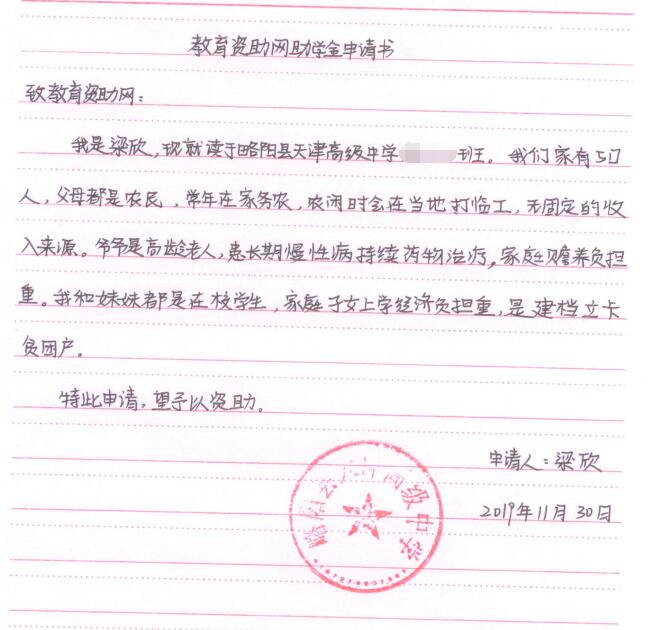 教育资助网助学金申请书
致教育资助网：
我是梁欣，现就读于略阳县天津高级中学 班。我们家有5口
人，父母都是农民，常年在家务农，农闲时会在当地打临工，无固定的收
入来源。爷爷是高龄老人，患长期慢性病持续药物治疗，家庭赡养负担
重。我和妹妹都是在校学生，家庭子女上学经济负担重，是建档立卡
贫困户。
特此申请，望予以资助。
申请人：梁欣
2019年11月30日
略阳县天津高级中学